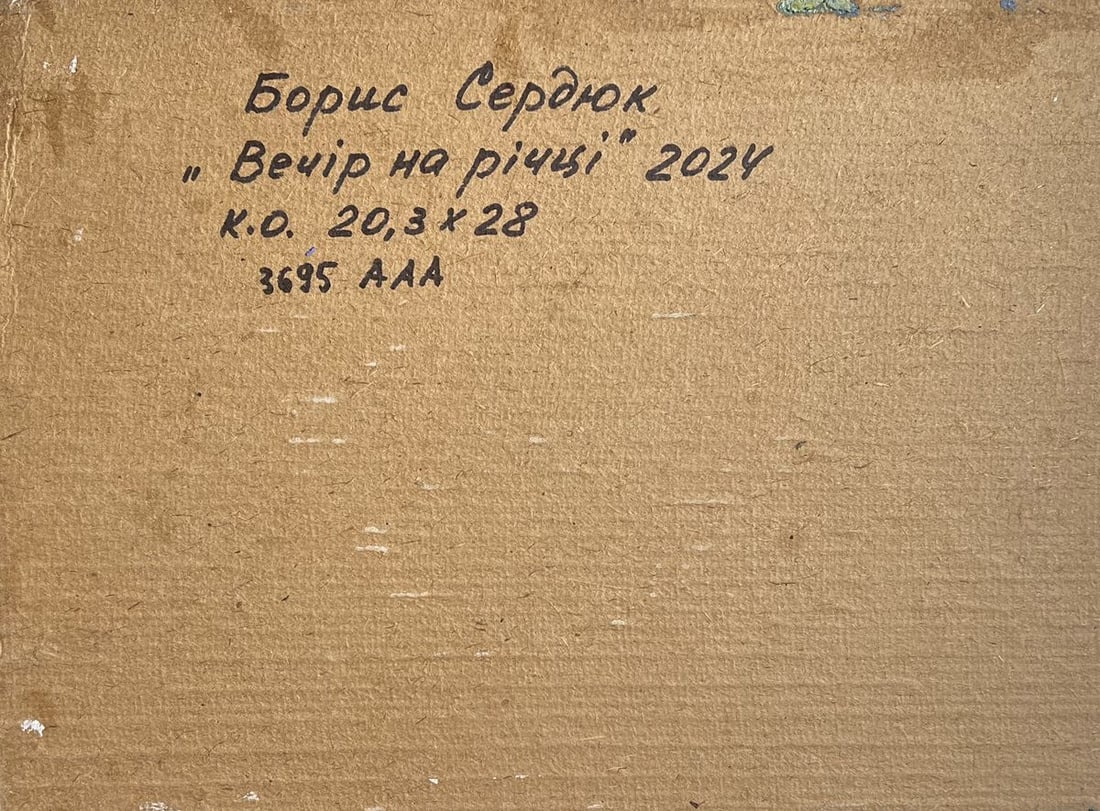 Борис Сердюк
„Вечір на річці" 2024
к.о. 20,3 х 28
3695 ААА